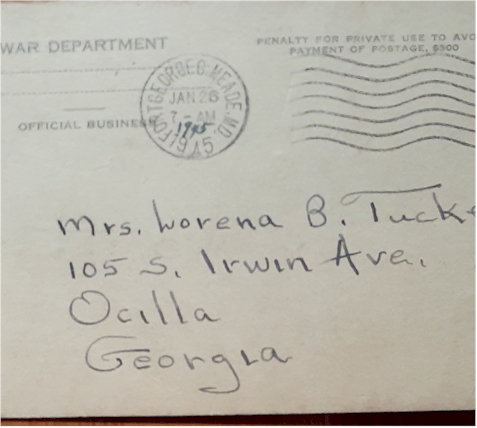 WAR DEPARTMENT
OFFICIAL BUSINESS
PENALTY FOR PRIVATE USE TO AVO
PAYMENT OF POSTAGE, $300
FORT GEORGE G. MEADE, MD.
JAN 26
7 - AM
1945
1945
Mrs. Lorena B. Tuck
105 S. Irwin Ave.
Ocilla
Georgia